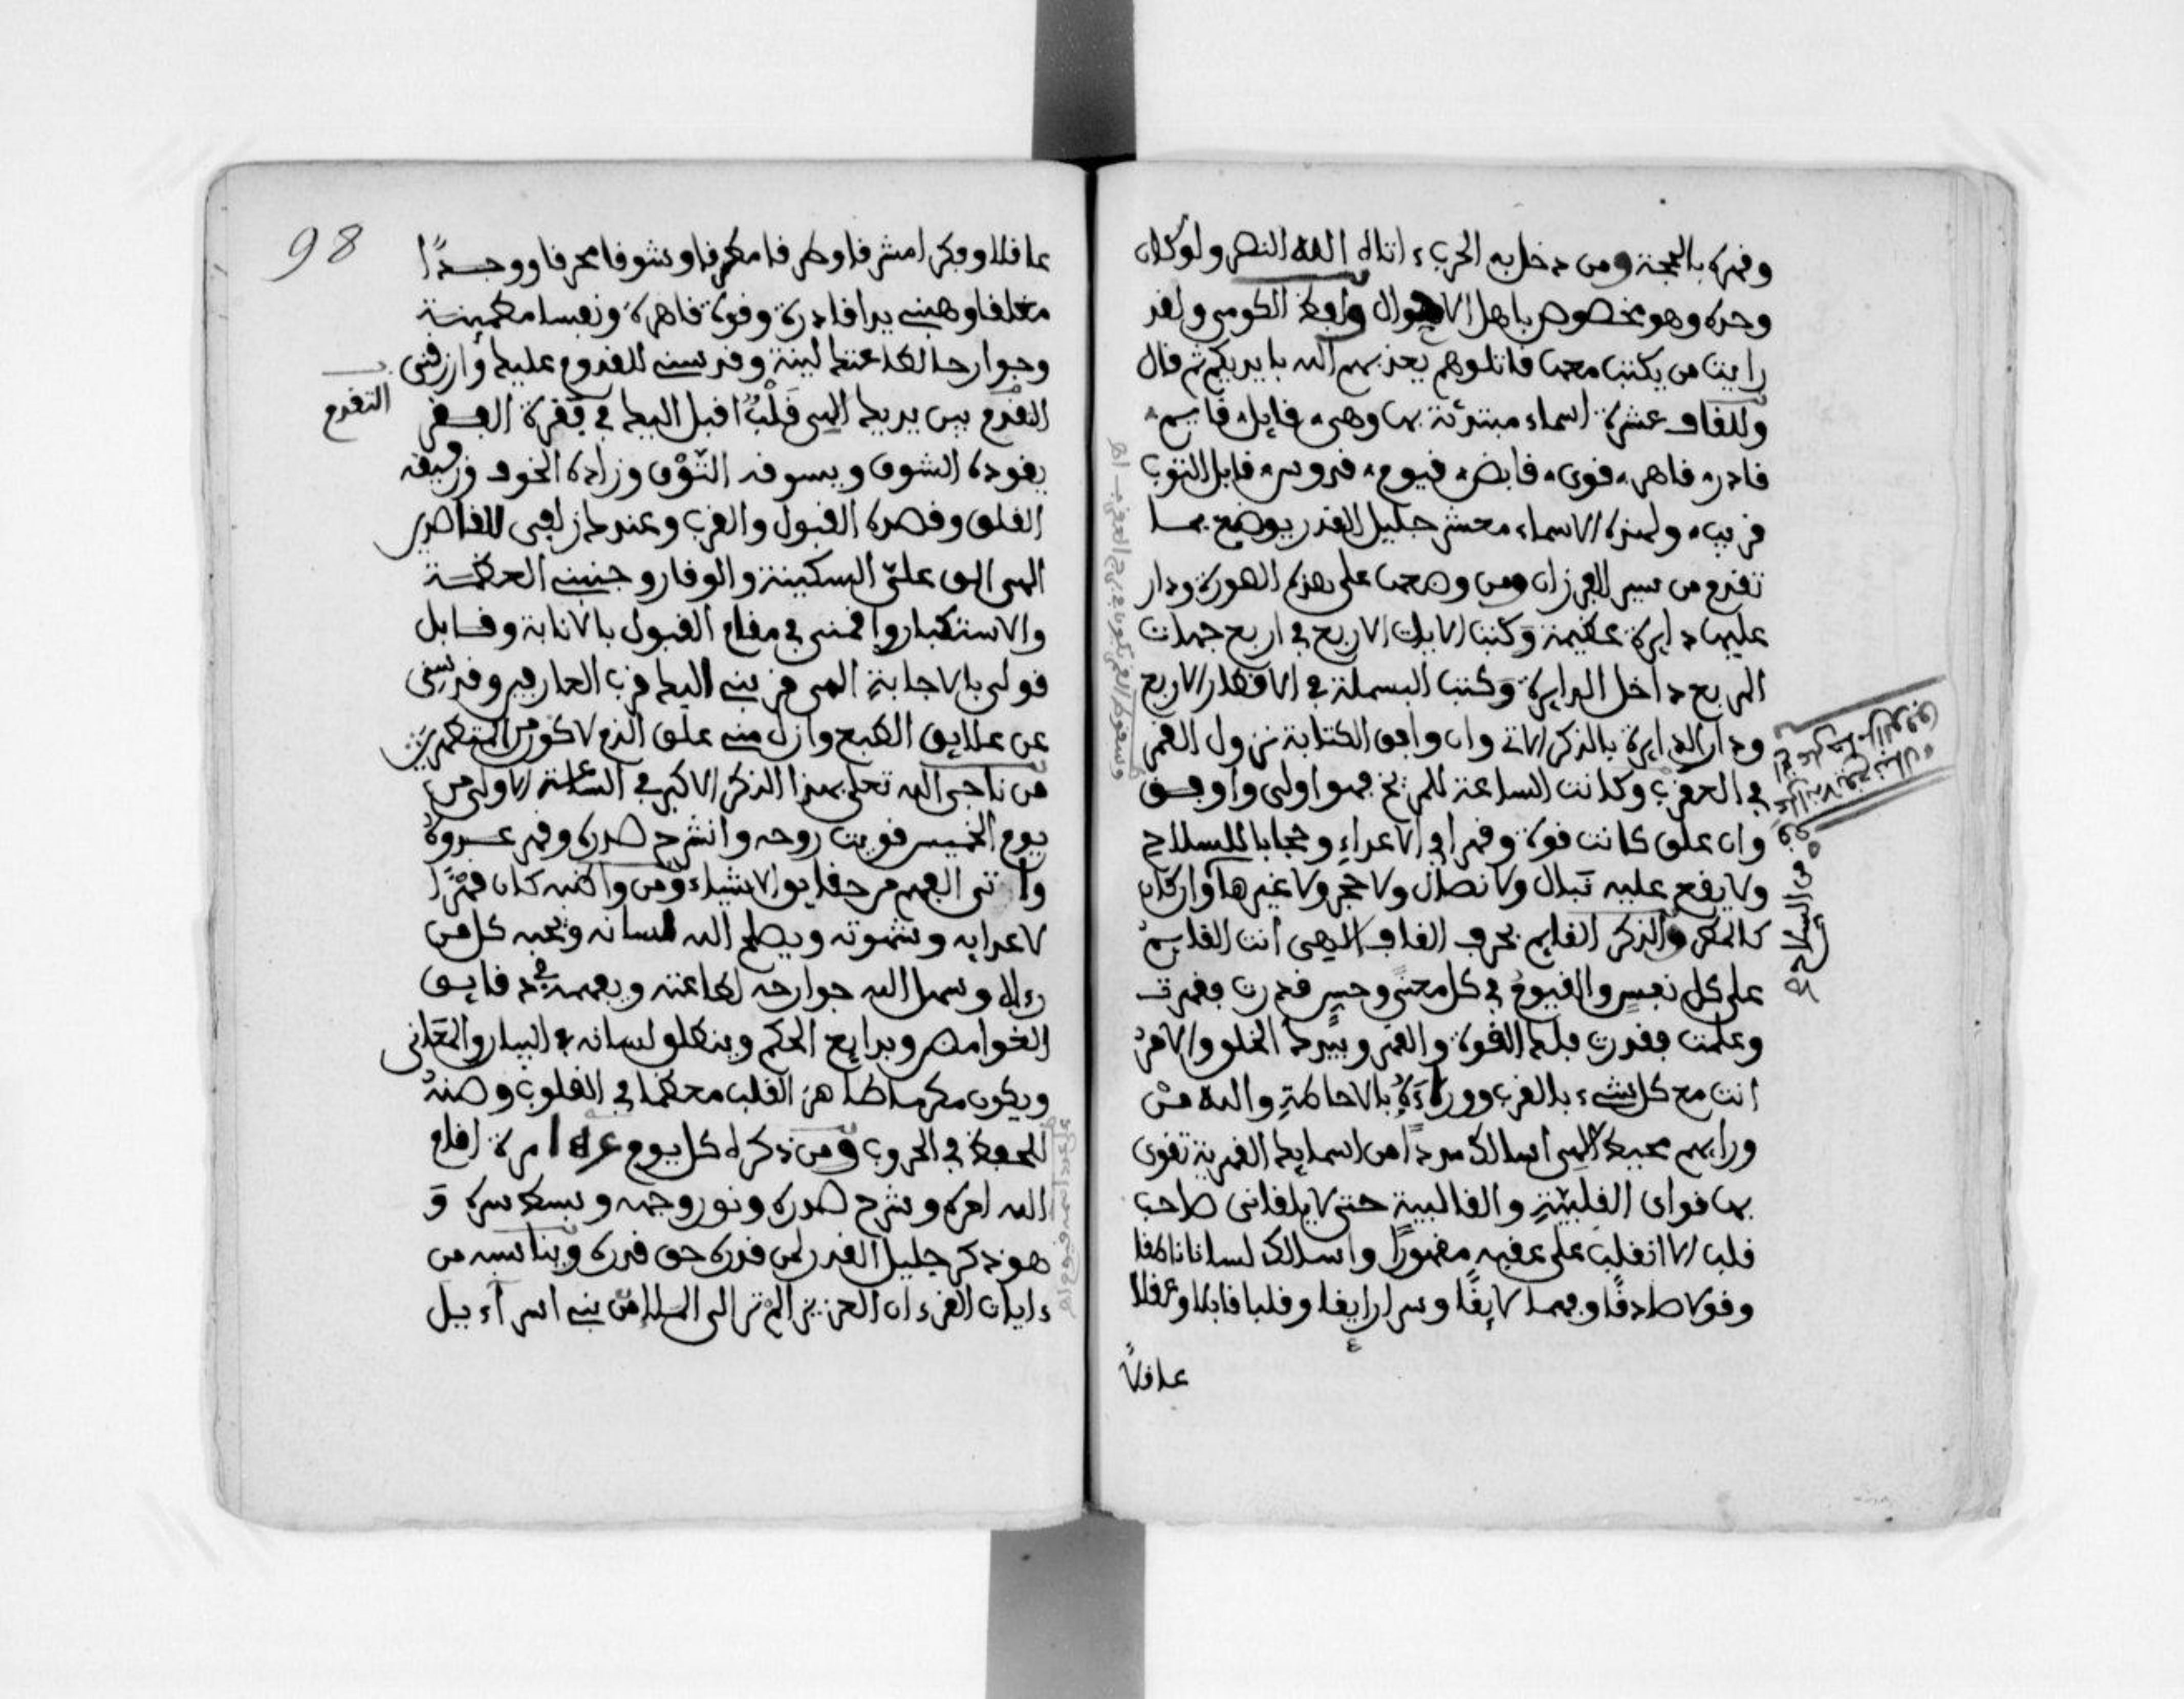 وقهره بالحجة ومن دخل به الحرب اتاه الله النصر ولو كان
وحده وهو مخصوص باهل الاهوال واوفاط الكومي ولقد
رايت من يكتب معها قاتلوهم يعذبهم الله بايديكم ثم قال
وللقاف عشرة اسماء مبتدئة بها وهي قايل قاسم
قادر قاهر قوي قابض قيوم قدوس قابل التوب
قريب ولهذه الاسماء معشر جليل القدر يوضع بما
تقدم من سير القرءان ومن وضعها على هذه الصورة ودار
عليها دايرة عظيمة وكتب الايات الاربع في اربع جهات
المربع داخل الدايرة وكتب البسملة في الاقطار الاربع
ودار الدايرة بالذكر الاتي وان وافق الكتابة نزول القمر
في العقرب وكانت الساعة للمريخ فهو اولى واوفق
وان علق كانت قوة وقهرا في الاعداء وحجابا للسلاح
ولا يقع عليه نبال ولا نصال ولا حجر ولا غيرها واركان
كالمطر والذكر القايم بحرف القاف الاهي انت القايم
على كل نفس والقيوم في كل معنى وحس قدرت فقهرت
وعلمت فقدرت فلك القوة والقهر وبيدك الخلق والامر
انت مع كل شيء بالقرب ووراءه بالاحاطة والله من
ورايهم محيط الهي اسالك مددا من اسمايك القهرية تقوي
بها قواي القلبية والقالبية حتى لا يلقاني صاحب
قلب الا انقلب على عقبه مقهورا واسالك لسانا ناطقا
وقولا صادقا وفهما لايقا وسرا رايقا وقلبا قابلا وعقلا
عاقلا
98
عاقلا وفكرا مشرقا وطرفا مطرقا وشوقا محرقا ووجدا
مغلقا وهبني يدا قادرة وقوة قاهرة ونفسا مطمينة
وجوارحا لطاعتك لينة وقدسني للقدوم عليك وارزقني
التقدم بين يديك الهي قلب اقبل اليك في قفرة الفقر
التقدم
يقوده الشوق ويسوقه التوق وزاده الخوف ورفيقه
القلق وقصده القبول والقرب وعندك زلفى القاصدين
الهي الق علي السكينة والوقار وجنبني العظمة
والاستكبار واقمني في مقام القبول بالانابة وقابل
قولي بالاجابة الهي قربني اليك قرب العارفين وقدسني
عن علايق الطبع وازل مني علق الذم لاكون من المتطهرين
من ناجى الله تعلى بهذا الذكر الاكبر في الساعة الاولى من
يوم الخميس قويت روحه وانشرح صدره وقهر عدوه
واتى الفهم من حقايق الاشياء ومن واظبه كان قهرا
لاعدايه وشهوته ويصلح الله لسانه ويحبه كل من
رءاه وسهل الله جوارحه لطاعته ويفهمه في دقايق
الغوامض وبدايع الحكم وينطلق لسانه في البيان والمعاني
ويكون مكرما طاهر القلب معظما في القلوب وصنه
للحفظ في الحروب ومن ذكره كل يوم مرة اقام
الله امره وشرح صدره ونور وجهه وبسط سره و
هو ذكر جليل القدر لمن قدره حق قدره ويناسبه من
ءايات القرءان العزيز الم تر الى الملا من بني اسرآءيل